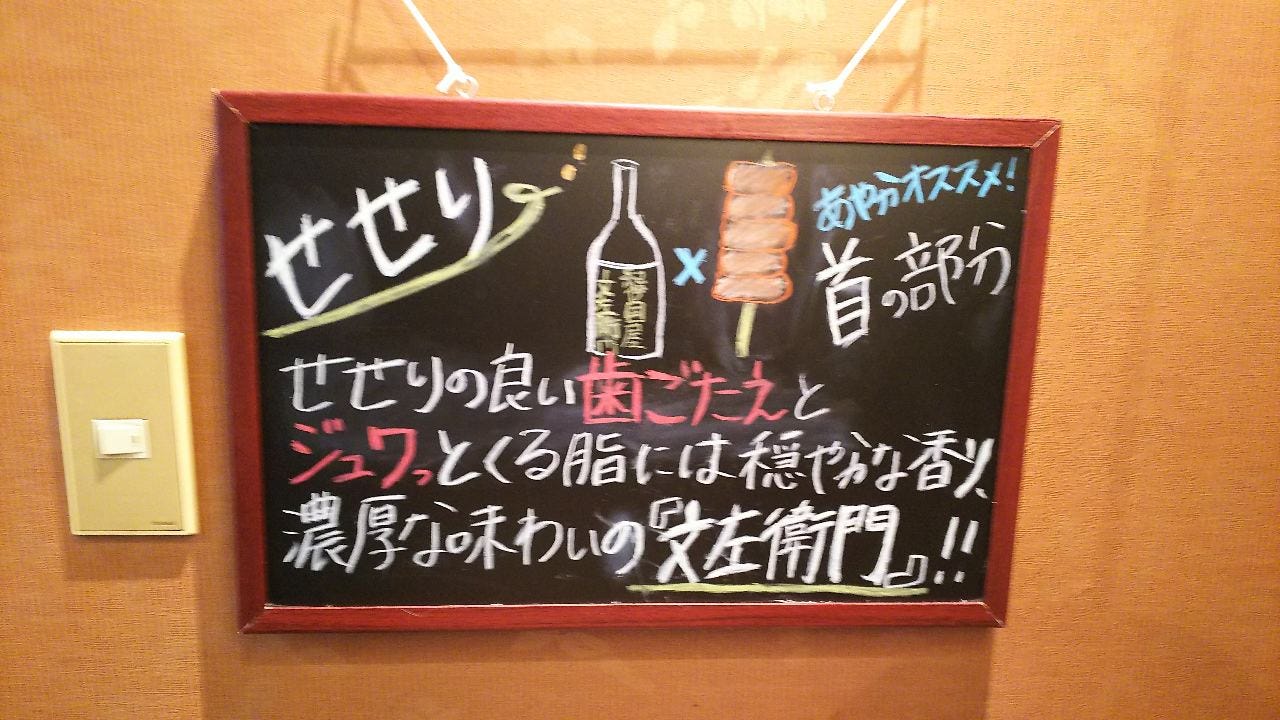 せせり
稲田屋
文左衛門
×
オススメ!
首の部分
せせりの良い歯ごたえと
ジュワっとくる脂には穏やかな香り、
濃厚な味わいの『文左衛門』!!